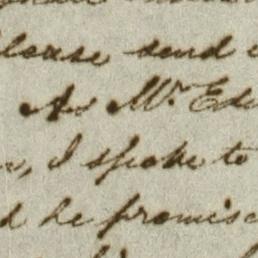 Please send
As Mr. Ed
I spoke to
d he promis